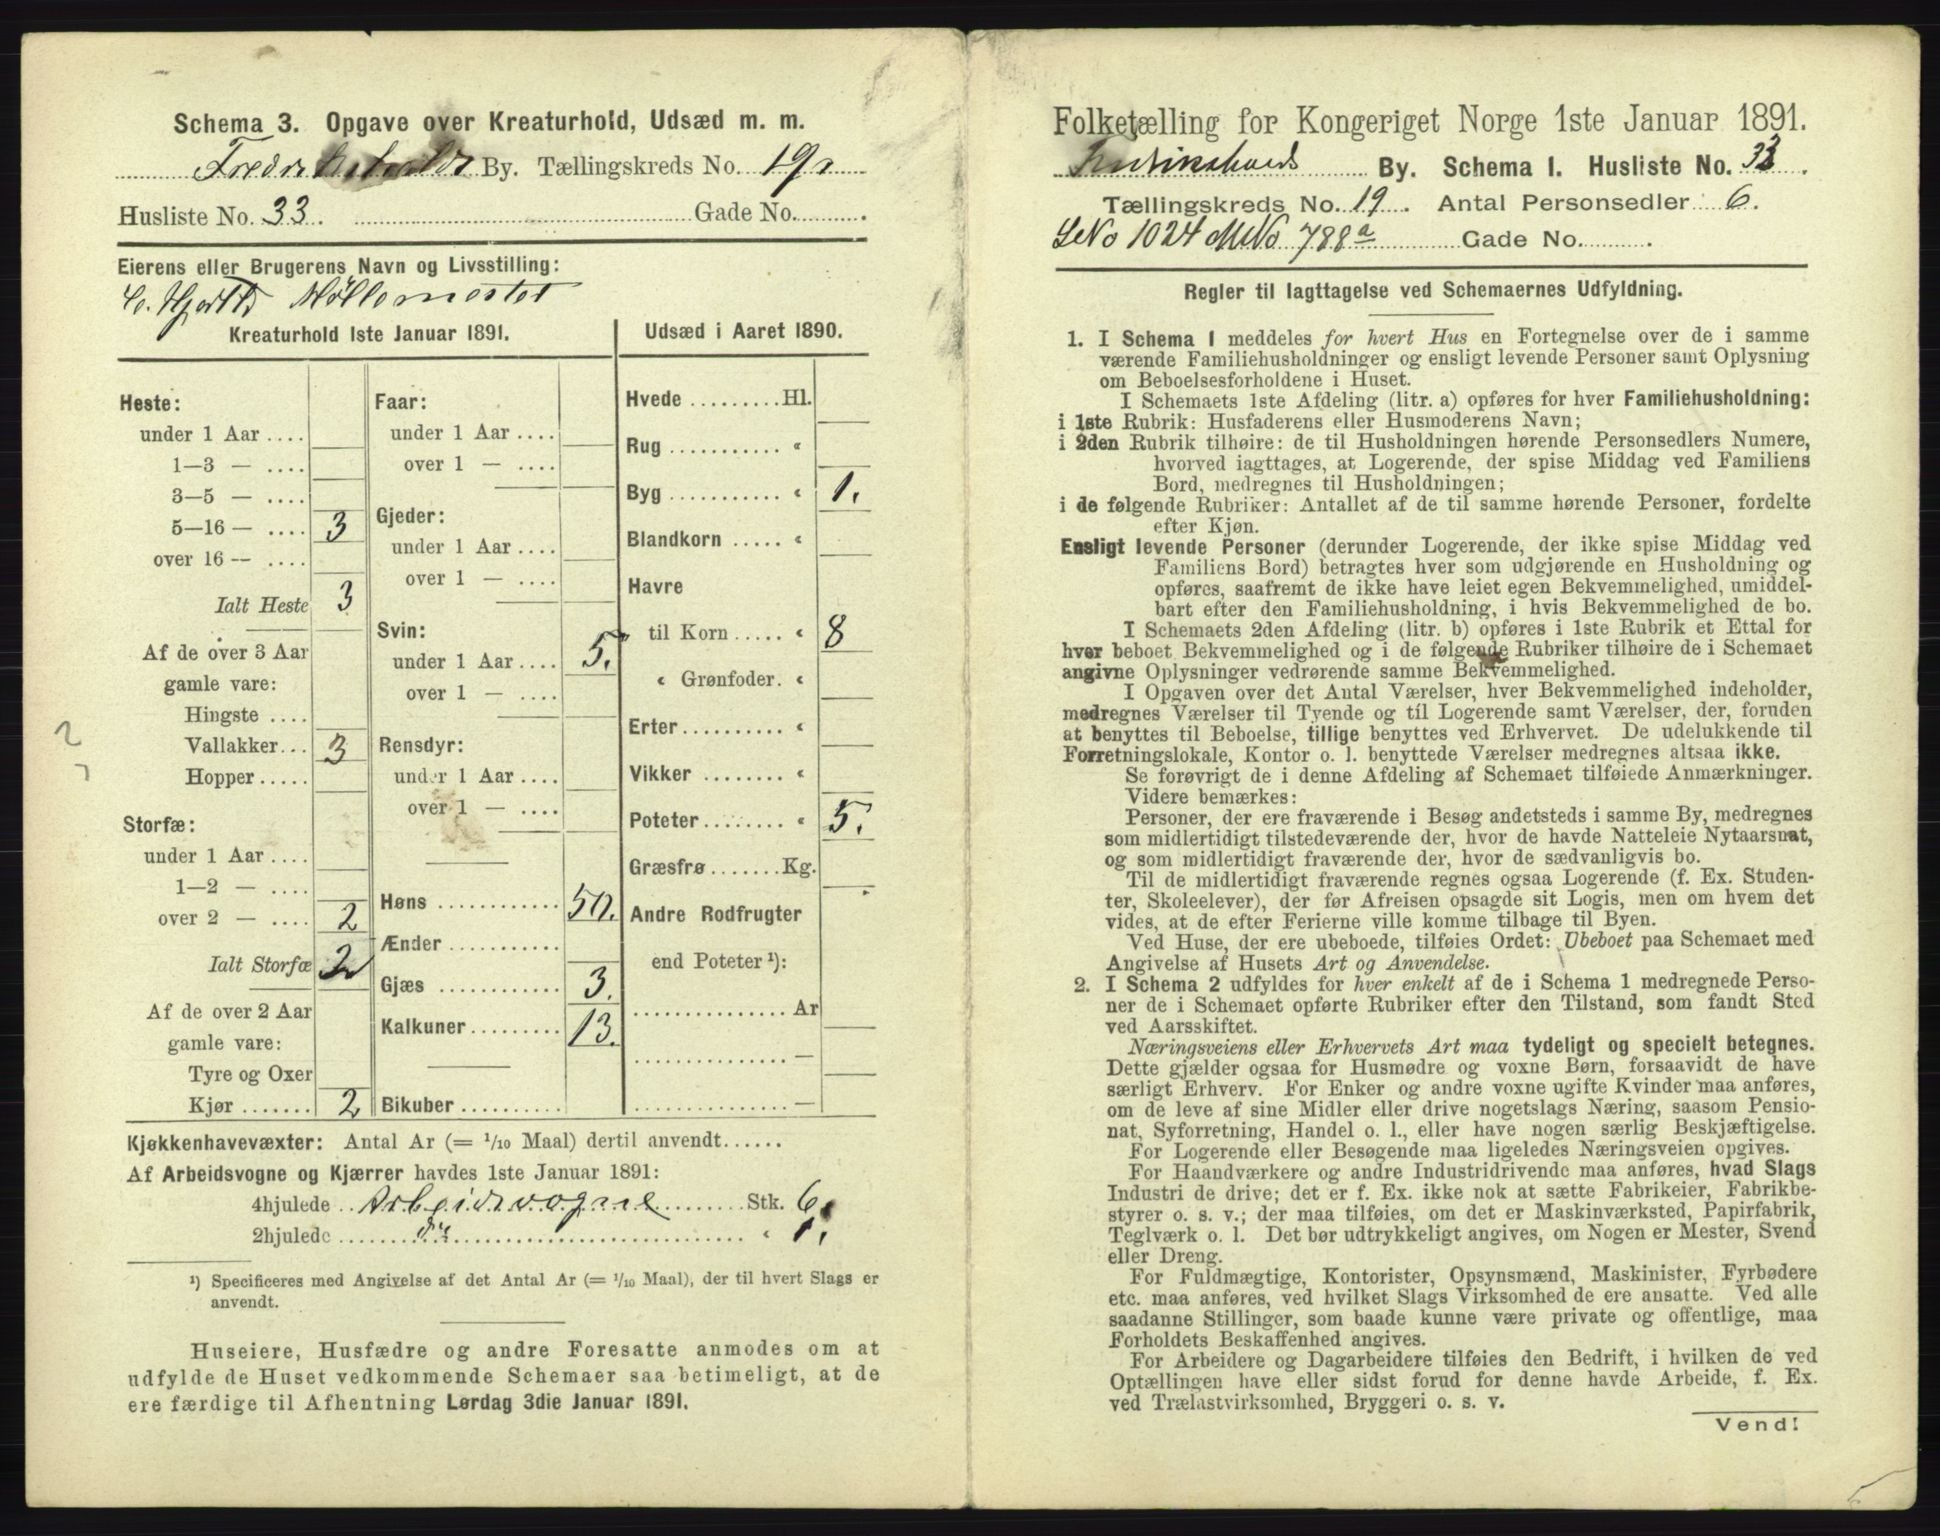 Schema 3. Opgave over Kreaturhold, Udsæd m. m.
By. Tællingskreds No. 19
Husliste No. 33. Gade No.
Eierens eller Brugerens Navn og Livsstilling:
Møllemester
Kreaturhold 1ste Januar 1891.
Heste:
under 1 Aar ....
1—3 — ....
3—5 — ....
5—16 — .... 3
over 16 — ....
Ialt Heste 3
Af de over 3 Aar
gamle vare:
Hingste ....
Vallakker... 3
Hopper .....
Storfæ:
under 1 Aar ....
1—2 — ....
over 2 — .... 2
Ialt Storfæ 2
Af de over 2 Aar
gamle vare:
Tyre og Oxer
Kjør ....... 2
Faar:
under 1 Aar ....
over 1 — ....
Gjeder:
under 1 Aar ....
over 1 — ....
Svin:
under 1 Aar .... 5.
over 1 — ....
Rensdyr:
under 1 Aar ....
over 1 — ....
Høns ............ 50.
Ænder ...........
Gjæs ............ 3.
Kalkuner ......... 13.
Bikuber ..........
Udsæd i Aaret 1890.
Hvede ......... Hl.
Rug ........... “
Byg ........... “ 1.
Blandkorn ..... “
Havre
til Korn ..... “ 8
“ Grønfoder. “
Erter .......... “
Vikker ........ “
Poteter ........ “ 5.
Græsfrø ....... Kg.
Andre Rodfrugter
end Poteter ¹):
............... Ar
............... —
............... —
Kjøkkenhavevæxter: Antal Ar (= 1/10 Maal) dertil anvendt......
Af Arbeidsvogne og Kjærrer havdes 1ste Januar 1891:
4hjulede .. Arbeidsvogne ........ Stk. 6.
2hjulede ...... “ 1.
¹) Specificeres med Angivelse af det Antal Ar (= 1/10 Maal), der til hvert Slags er
anvendt.
Huseiere, Husfædre og andre Foresatte anmodes om at
udfylde de Huset vedkommende Schemaer saa betimeligt, at de
ere færdige til Afhentning Lørdag 3die Januar 1891.
2
Folketælling for Kongeriget Norge 1ste Januar 1891.
Fredrikshalds By. Schema I. Husliste No. 33.
Tællingskreds No. 19. Antal Personsedler 6.
LNo 1024 MNo 788a Gade No.
Regler til Iagttagelse ved Schemaernes Udfyldning.
1. I Schema 1 meddeles for hvert Hus en Fortegnelse over de i samme
værende Familiehusholdninger og ensligt levende Personer samt Oplysning
om Beboelsesforholdene i Huset.
I Schemaets 1ste Afdeling (litr. a) opføres for hver Familiehusholdning:
i 1ste Rubrik: Husfaderens eller Husmoderens Navn;
i 2den Rubrik tilhøire: de til Husholdningen hørende Personsedlers Numere,
hvorved iagttages, at Logerende, der spise Middag ved Familiens
Bord, medregnes til Husholdningen;
i de følgende Rubriker: Antallet af de til samme hørende Personer, fordelte
efter Kjøn.
Ensligt levende Personer (derunder Logerende, der ikke spise Middag ved
Familiens Bord) betragtes hver som udgjørende en Husholdning og
opføres, saafremt de ikke have leiet egen Bekvemmelighed, umiddel-
bart efter den Familiehusholdning, i hvis Bekvemmelighed de bo.
I Schemaets 2den Afdeling (litr. b) opføres i 1ste Rubrik et Ettal for
hver beboet Bekvemmelighed og i de følgende Rubriker tilhøire de i Schemaet
angivne Oplysninger vedrørende samme Bekvemmelighed.
I Opgaven over det Antal Værelser, hver Bekvemmelighed indeholder,
medregnes Værelser til Tyende og til Logerende samt Værelser, der, foruden
at benyttes til Beboelse, tillige benyttes ved Erhvervet. De udelukkende til
Forretningslokale, Kontor o. l. benyttede Værelser medregnes altsaa ikke.
Se forøvrigt de i denne Afdeling af Schemaet tilføiede Anmærkninger.
Videre bemærkes:
Personer, der ere fraværende i Besøg andetsteds i samme By, medregnes
som midlertidigt tilstedeværende der, hvor de havde Natteleie Nytaarsnat,
og som midlertidigt fraværende der, hvor de sædvanligvis bo.
Til de midlertidigt fraværende regnes ogsaa Logerende (f. Ex. Studen-
ter, Skoleelever), der før Afreisen opsagde sit Logis, men om hvem det
vides, at de efter Ferierne ville komme tilbage til Byen.
Ved Huse, der ere ubeboede, tilføies Ordet: Ubeboet paa Schemaet med
Angivelse af Husets Art og Anvendelse.
2. I Schema 2 udfyldes for hver enkelt af de i Schema 1 medregnede Perso-
ner de i Schemaet opførte Rubriker efter den Tilstand, som fandt Sted
ved Aarsskiftet.
Næringsveiens eller Erhvervets Art maa tydeligt og specielt betegnes.
Dette gjælder ogsaa for Husmødre og voxne Børn, forsaavidt de have
særligt Erhverv. For Enker og andre voxne ugifte Kvinder maa anføres,
om de leve af sine Midler eller drive nogetslags Næring, saasom Pensio-
nat, Syforretning, Handel o. l., eller have nogen særlig Beskjæftigelse.
For Logerende eller Besøgende maa ligeledes Næringsveien opgives.
For Haandværkere og andre Industridrivende maa anføres, hvad Slags
Industri de drive; det er f. Ex. ikke nok at sætte Fabrikeier, Fabrikbe-
styrer o. s. v.; der maa tilføies, om det er Maskinværksted, Papirfabrik,
Teglværk o. l. Det bør udtrykkeligt angives, om Nogen er Mester, Svend
eller Dreng.
For Fuldmægtige, Kontorister, Opsynsmænd, Maskinister, Fyrbødere
etc. maa anføres, ved hvilket Slags Virksomhed de ere ansatte. Ved alle
saadanne Stillinger, som baade kunne være private og offentlige, maa
Forholdets Beskaffenhed angives.
For Arbeidere og Dagarbeidere tilføies den Bedrift, i hvilken de ved
Optællingen have eller sidst forud for denne havde Arbeide, f. Ex.
ved Trælastvirksomhed, Bryggeri o. s. v.
Vend!